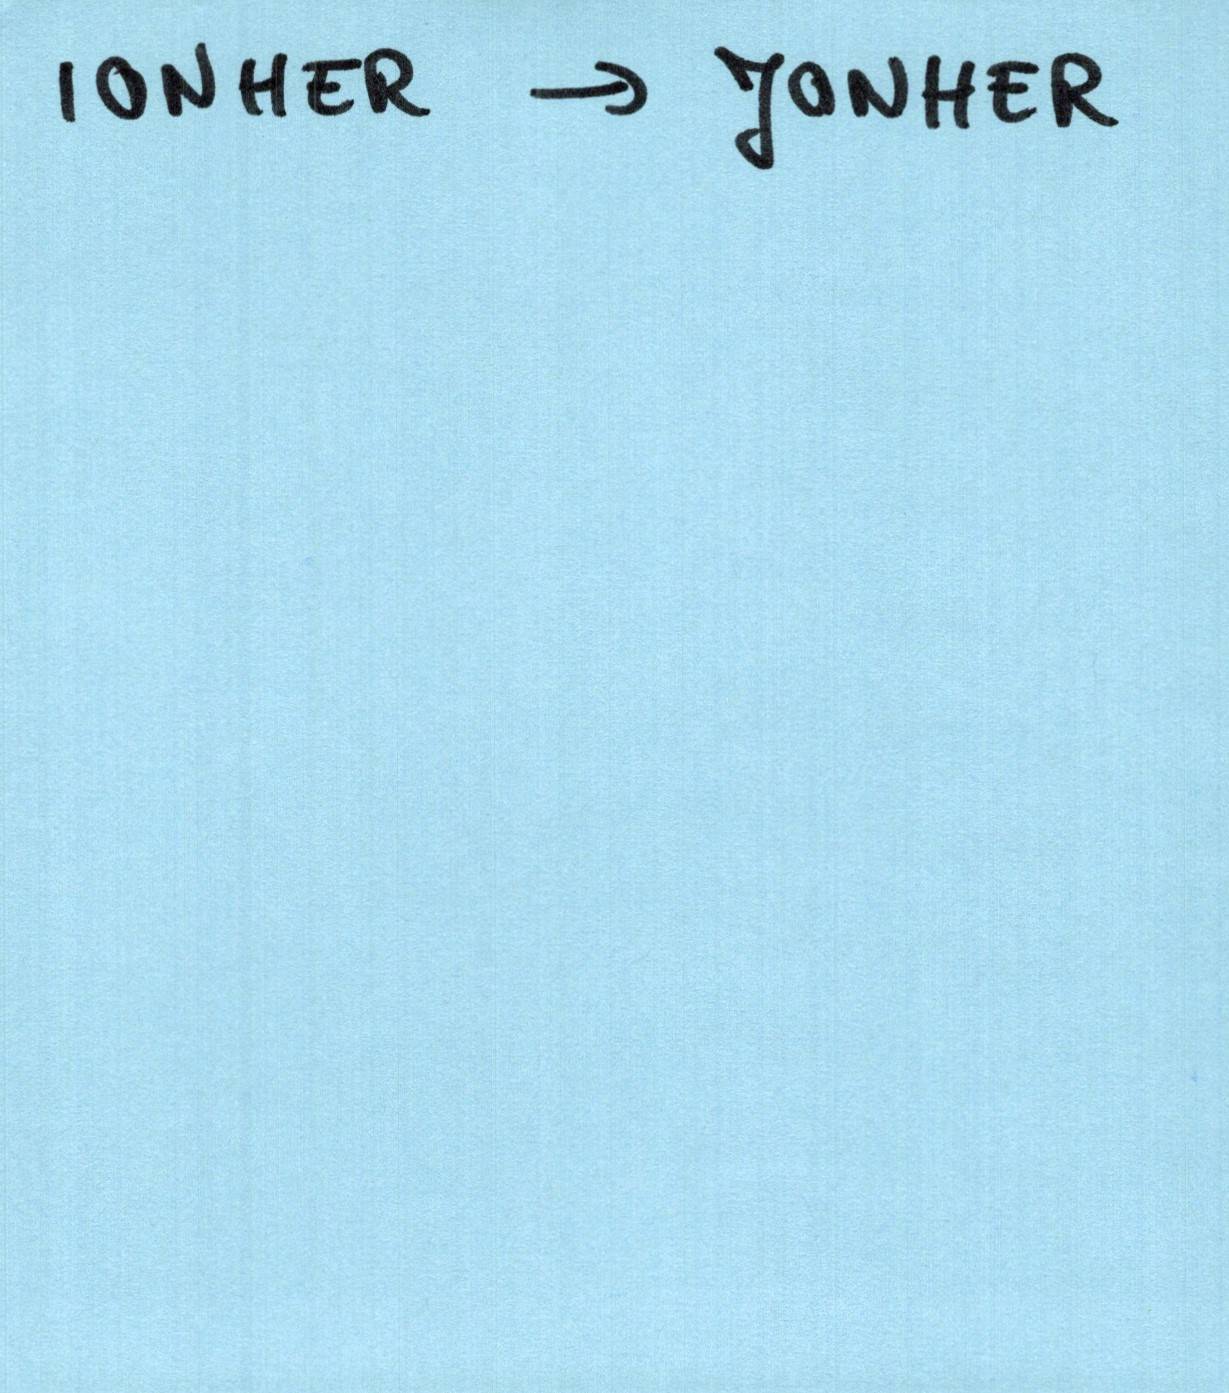 IONHER → JONHER